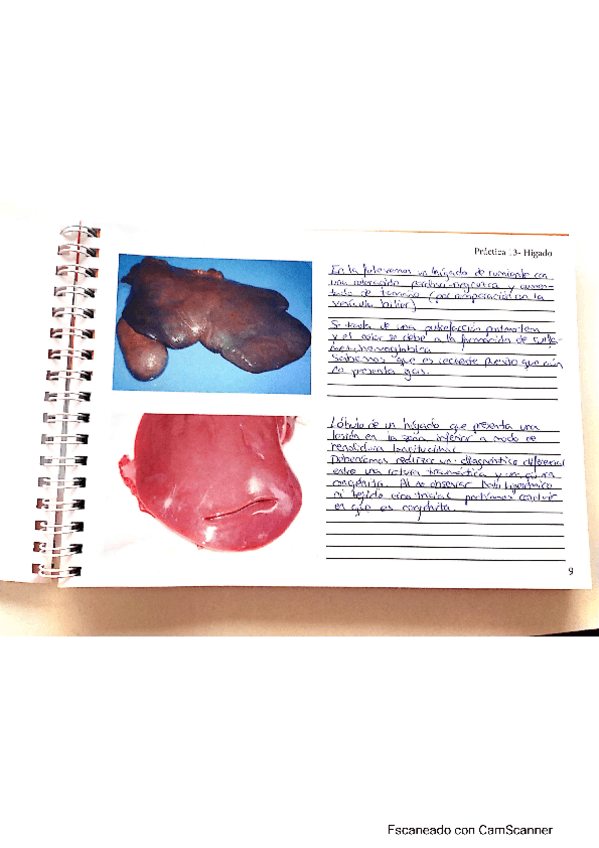 Práctica 13- Hígado
En la foto vemos un hígado de rumiante con
una coloración negruzca y aumen-
tado de tamaño (por comparación con la
vesícula biliar)
Se trata de una putrefacción postmortem
y el color se debe a la formación de sulfo-
metahemoglobina
Sabemos que es reciente puesto que aún
no presenta gas.
Lóbulo de un hígado que presenta una
lesión en la zona inferior a modo de
hendidura longitudinal
Deberemos realizar un diagnóstico diferencial
entre una rotura traumática y una
congénita. Al no observar
ni tejido cicatricial podríamos concluir
en que es congénita.
9
Escaneado con CamScanner